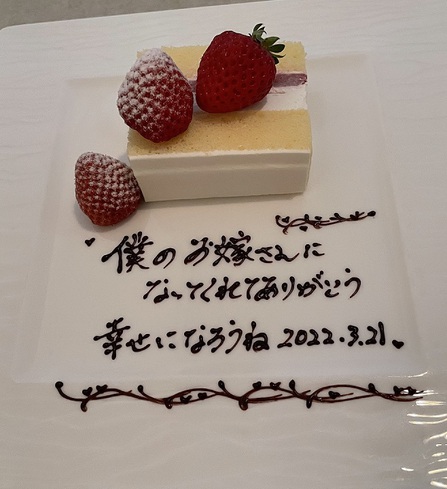 僕のお嫁さんに
なってくれてありがとう
幸せになろうね 2022.3.21